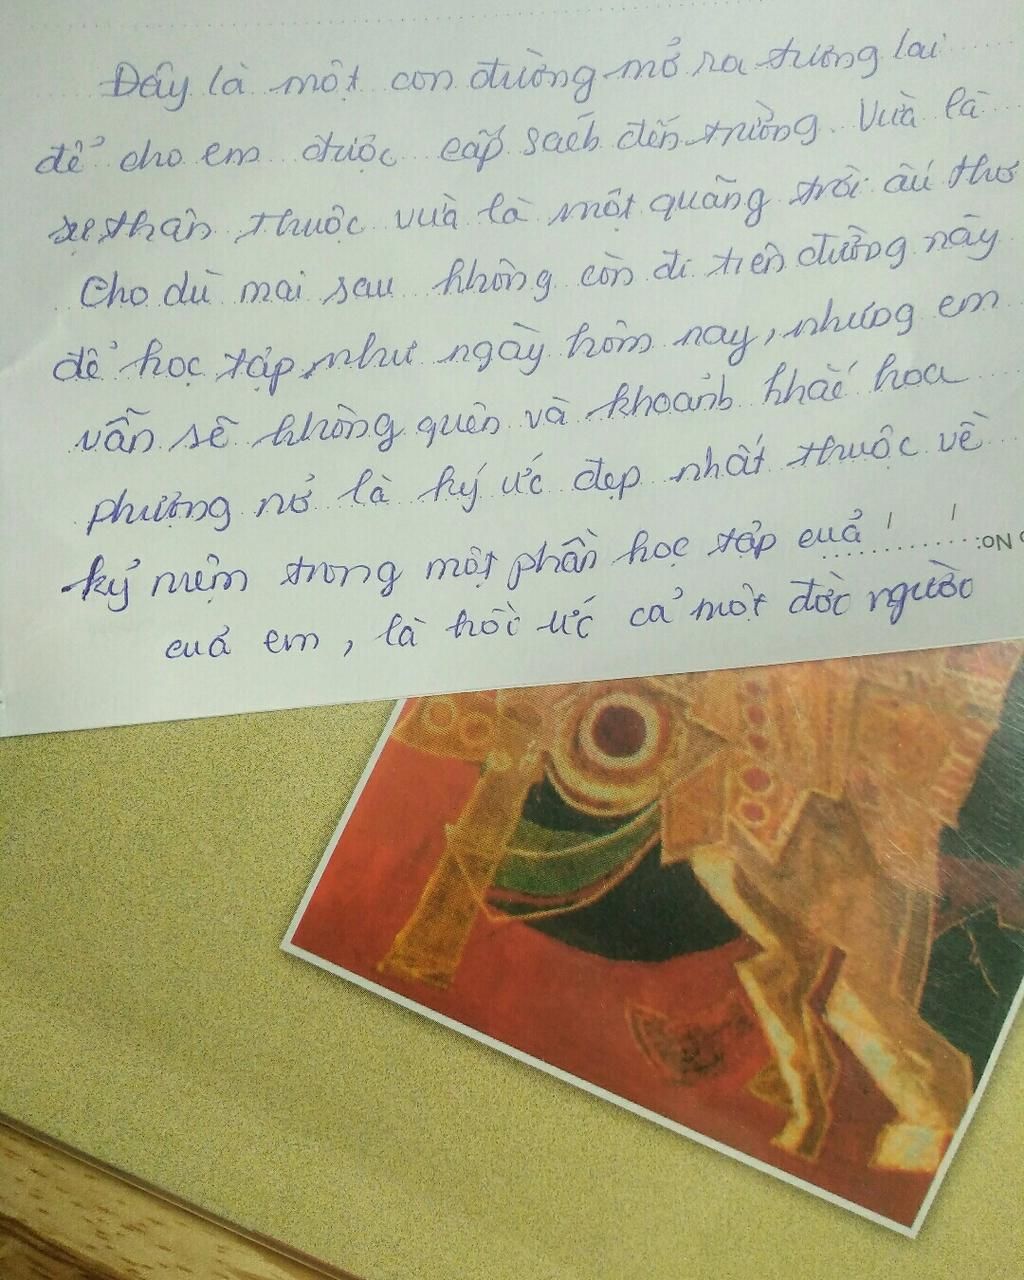 Đây là một con đường mở ra tương lai
để cho em được cắp sách đến trường. Vừa là
sự thân thuộc vừa là một quãng trời ấu thơ
Cho dù mai sau không còn đi trên đường này
để học tập, như ngày hôm nay, nhưng em
vẫn sẽ không quên và khoảnh khắc hoa
phượng nở là ký ức đẹp nhất thuộc về
kỷ niệm trong một phần học tập của
của em, là hồi ức cả một đời người
No: